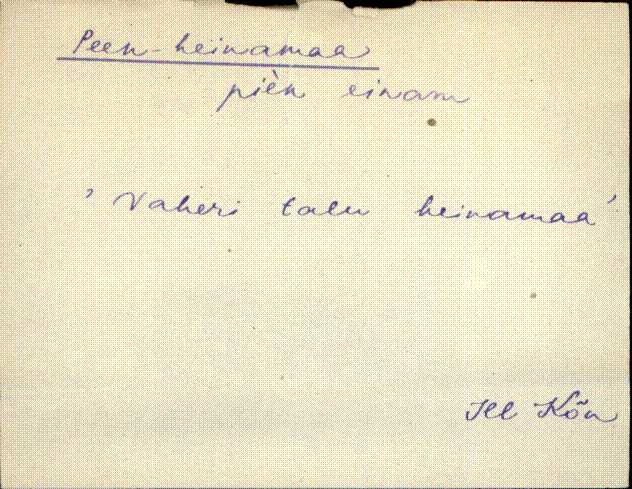 Peen-heinamaa
pièn einam
'Vaheri talu heinamaa'
Hl Kõn